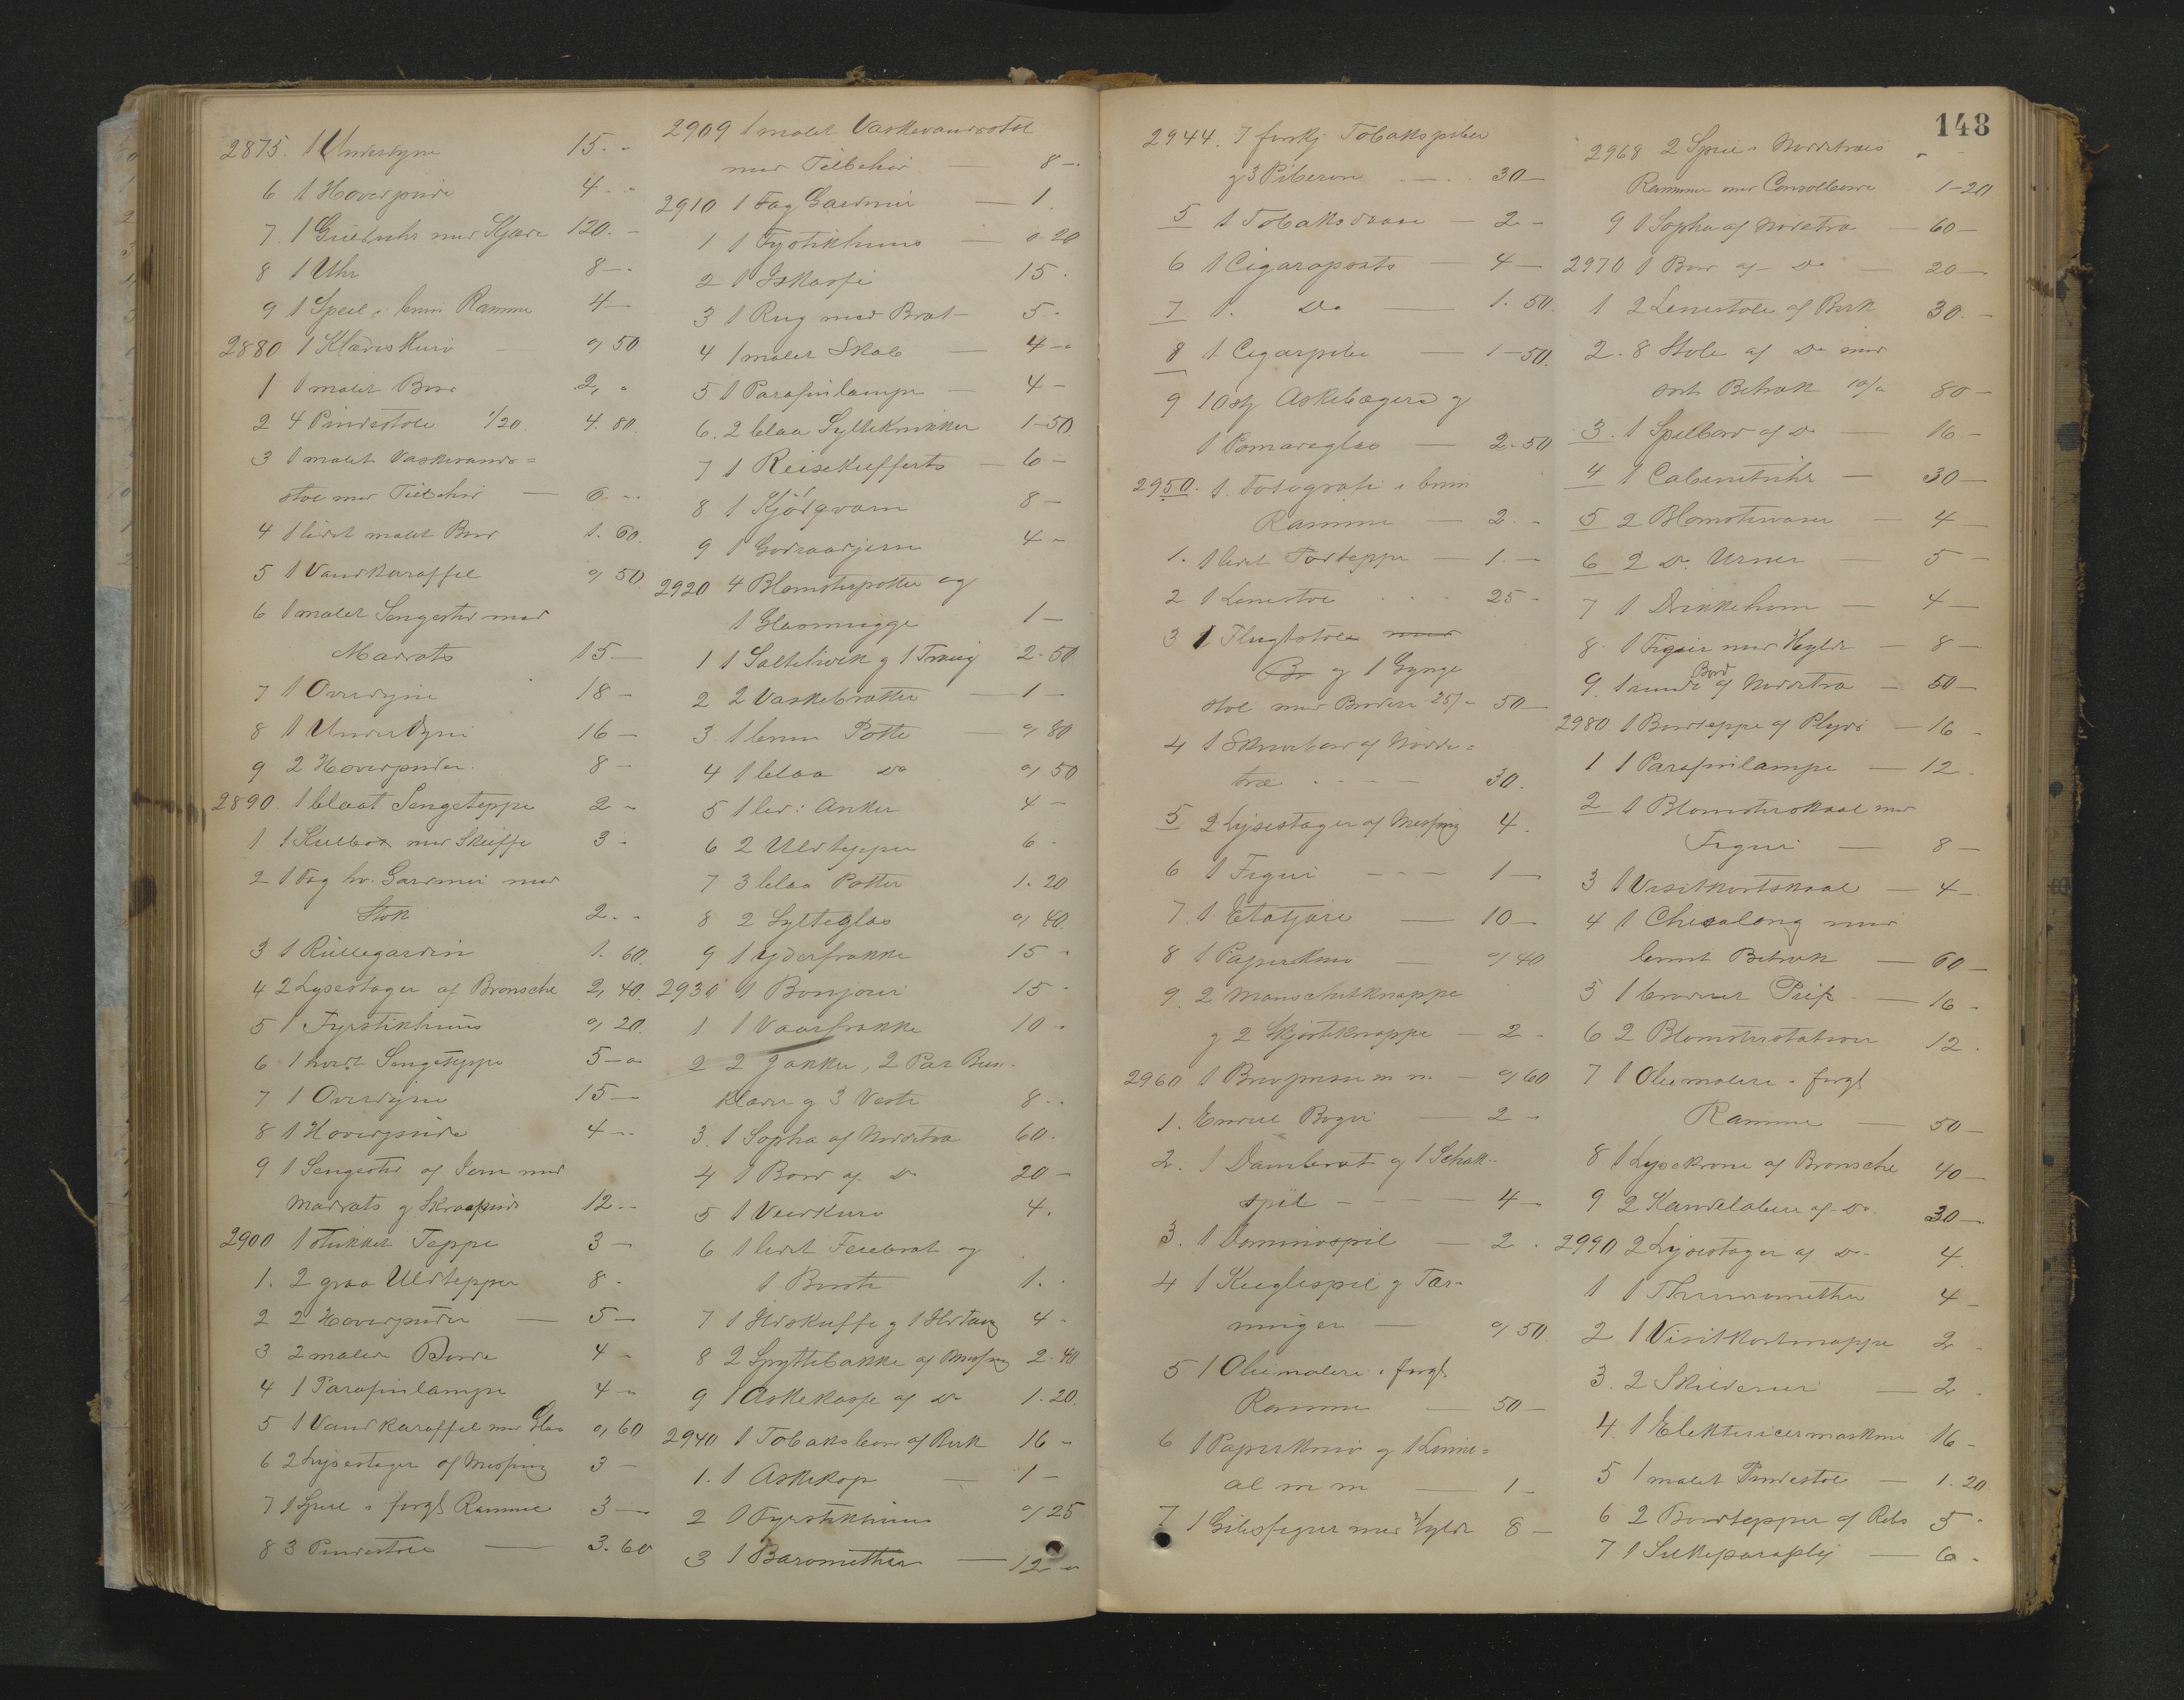 2875. 1 Underdyne 15. -
6 1 Hovedpude 4 - -
7. 1 Gulduhr med Kjæde 120. -
8 1 Uhr 8 - .
9 1 Speil i brun Ramme 4 -
2880 1 Klædeskurv - o, 50
1 1 malet Bord 2, -
2 4 Pindestole 1/20. 4. 80.
3 1 malet Vaskevands=
stol med Tilbehør - 6 - .
4 1 lidet malet Bord 1. 60.
5 1 Vandkaraffel o, 50
6 1 malet Sengested med
Madrats 15 -
7 1 Overdyne 18 -
8 1 Underdyne 16 -
9 2 Hovedpuder. 8 -
2890. 1 blaat Sengeteppe 2 -
1 1 Kulbox med Skuffe 3 -
2 1 Fag hv. Gardiner med
Stok 2. -
3 1 Rullegardin 1. 60.
4 2 Lysestager af Bronsche 2, 40.
5 1 Fyrstikhuus o, 20.
6 1 hvidt Sengeteppe 5 -
7 1 Overdyne 15 -
8 1 Hovedpude 4 - -
9 1 Sengested af Jern med
Madrats g Skraapude 12 - -
2900 1 stukket Teppe 3 -
1. 2 graa Uldtepper 8 -
2 2 Hovedpuder - 5 -
3 2 malede Borde 4 -
4 1 Parafinlampe 4 -
5 1 Vandkaraffel med Glas o, 60
6 2 Lysestager af Messing 3 -
7 1 Speil i forgl Ramme 3 -
8 3 Pindestole - 3. 60
2909 1 malet Vaskevandsstol
med Tilbehør - 8 - .
2910 1 Fag Gardiner - 1.
1 1 Fyrstikhuus - o. 20
2 1 Iskasse 15 .
3 1 Rug med Brat 5 -
4 1 malet Skab - 4 -
5 1 Parafinlampe - 4 -
6. 2 blaa Syltekrukker 1 - 50.
7 1 Reisekuffert - 6 -
8 1 Kjødqvarn 8 -
9 1 Godraadjern 4 -
2920 4 Blomsterpotter og
1 Glasmugge 1 -
1 1 Saltetivek g 1 Traug 2 - 50
2 2 Vaskebratter - 1 -
3 1 brun Potte - o, 80
4 1 blaa Do o, 50
5 1 lid: Anker 4 -
6 2 Uldtepper 6 -
7 3 blaa Potter 1. 20
8 2 Sylteglas o, 40.
9 1 Yderfrakke 15 -
2930 1 Bonjour 15 -
1 1 Vaarfrakke 10 -
2 2 Jakker, 2 Par Ben-
klæder g 3 Veste 8 - .
3. 1 Sopha af Nøddetræ 60 .
4 1 Bord af Do 20 -
5 1 Vedkurv 4 .
6 1 lidet Feiebrat og
1 Børste 1. .
7 1 Ildskuffe g 1 Ildtang 4 -
8 2 Spyttebakke af Messing 2. 40
9 1 Askekasse af Do 1. 20.
2940 1 Tobaksbord af Birk 16 -
1. 1 Askekop - 1 -
2 1 Fyrstikhuus o, 25
3 1 Baromether - 12 -
148
2944. 7 forskj Tobakspiber
g 3 Piberør - 30 -
5 1 Tobaksdaase - 2 -
6 1 Cigaraparats - 4 -
7 1. Do - 1. 50.
8 1 Cigarpibe - 1 - 50.
9 10 st Askebægere g
1 Pomadeglas - 2 - 50
2950. 1. Fotografi i brun
Ramme - 2. -
1. 1 lidet Bordteppe - 1. -
2 1 Lenestol - 25 -
3 1 Flugtstol med
Br g 1 Gynge
stol med Broderi 25/- 50 -
4 1 Skrivebord af Nødde=
træ - 30.
5 2 Lysestager af Messing 4.
6 1 Figur - 1 -
7. 1 Etatjere - 10 -
8 1 Papirkniv - o, 40
9. 2 Manschetknappe
g 2 Skjorteknappe - 2 -
2960 1 Brevpresse m m. - o, 60
1. Endeel Bøger - 2 -
2. 1 Dambrat g 1 Schak-
spil - - - 4 -
3. 1 Dominospil - 2 .
4 1 Kuglespil g Tær-
ninger - o, 50
5 1 Oliemaleri i forgl
Ramme - 50 -
6 1 Papirkniv g 1 Linne=
al m m - 1 -
7 1 Gibsfigur med Hylde 8 -
2968 2 Speil i Nøddetræs
Ramme med Consolborde 1 - 20
9 1 Sopha af Nødetræ - 60 -
2970 1 Bord af Do - 20 -
1 2 Lenestole af Birk 30. -
2. 8 Stole af Do med
sort Betræk 10/- 80 -
3. 1 Spillbord af Do - 16 -
4 1 Cabinetuhr - 30 -
5 2 Blomstervaser - 4 -
6 2 Do Urner - 5 -
7 1 Drikkehorn - 4 -
8. 1 Figur med Hylde - 8 -
9. 1 rundt Bord af Nøddetræ - 50 -
2980 1 Bordteppe af Plyds - 16 -
1 1 Parafinlampe - 12 -
2 1 Blomsterskaal med
Figur - 8 -
3 1 Visitkortskaal - 4 -
4 1 Chesalong med
brunt Betræk - 60 -
5 1 broderet Puf - 16 -
6 2 Blomsterstativer 12 .
7 1 Oliemaleri i forgl
Ramme - 50 -
8 1 Lysekrone af Bronsche 40 -
9 2 Kandelabere af Do. 30 -
2990 2 Lysestager af Do 4.
1 1 Thermomether 4 -
2 1 Visitkortmappe 2 -
3. 2 Skilderier - 2 .
4. 1 Elektricermaskine 16 -
5 1 malet Pindestol - 1. 20
6 2 Bordtepper af Rebs 5 -
7 1 Silkeparaply - 6 -